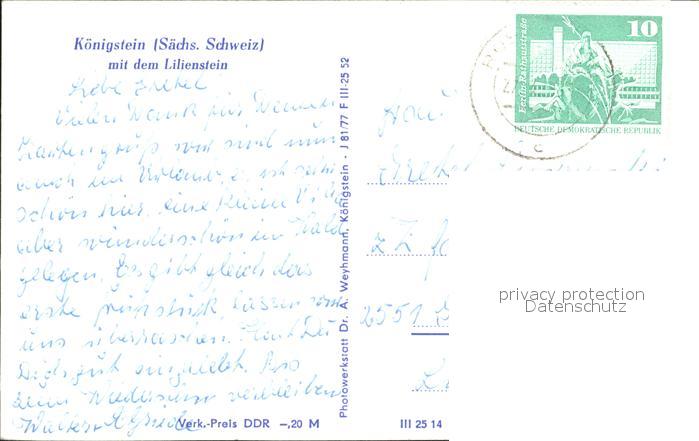 Königstein (Sächs. Schweiz)
mit dem Lilienstein
Liebe Gretel
Vielen Dank für Deinen
Kartengruß wir sind nun
auch im Urlaub, es ist sehr
schön hier, eine kleine Villa
aber wunderschön im Wald
gelegen. Es gibt gleich das
erste Frühstück, lassen wir
uns überraschen. Hast Du
Dich gut
zum Wiedersehn verbleiben
Walter +
Verk.-Preis DDR –,20 M
Photowerkstatt Dr. A. Weyhmann, Königstein - J 81/77 F III-25 52
III 25 14
10
Berlin, Rathausstraße
DEUTSCHE DEMOKRATISCHE REPUBLIK
Frau
z Z
2551
privacy protection
Datenschutz